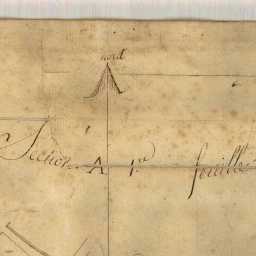 nord
Section A 1re feuille